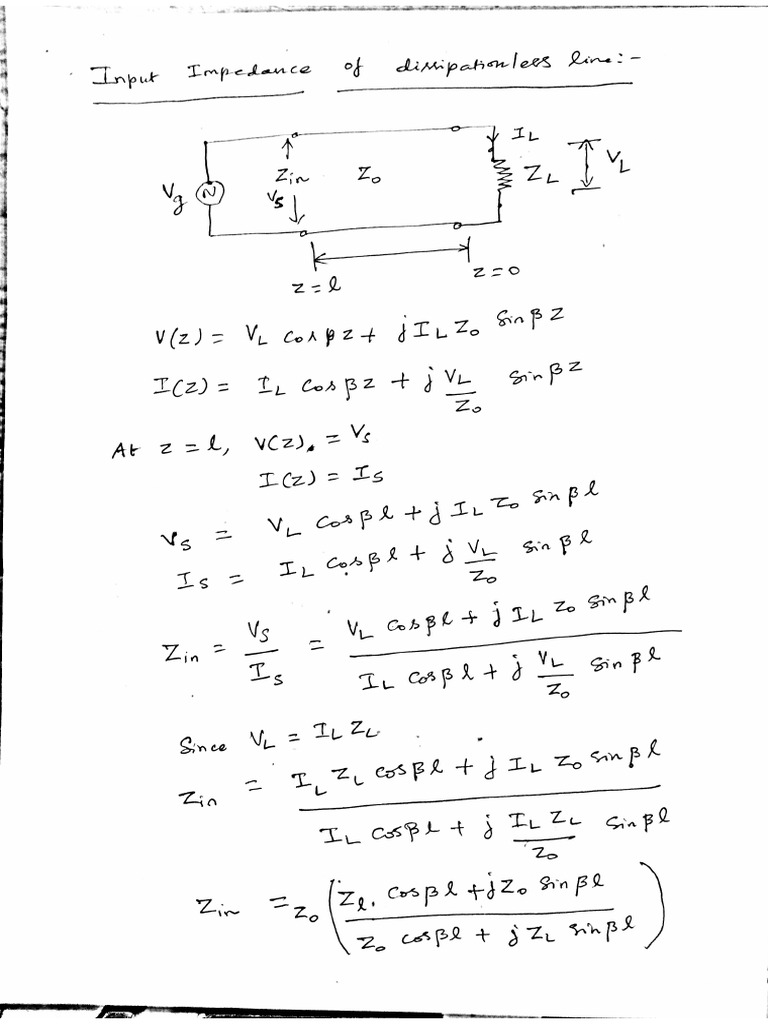 Input Impedance of dissipationless line:-
I_L
V_g Z_in Z_0 Z_L V_L
V_s
z = l z = 0
V(z) = V_L cos βz + j I_L Z_0 sin βz
I(z) = I_L cos βz + j V_L/Z_0 sin βz
At z = l, V(z) = V_s
I(z) = I_s
V_s = V_L cos βl + j I_L Z_0 sin βl
I_s = I_L cos βl + j V_L/Z_0 sin βl
Z_in = V_s/I_s = (V_L cos βl + j I_L Z_0 sin βl)/(I_L cos βl + j V_L/Z_0 sin βl)
Since V_L = I_L Z_L
Z_in = (I_L Z_L cos βl + j I_L Z_0 sin βl)/(I_L cos βl + j I_L Z_L/Z_0 sin βl)
Z_in = Z_0 ((Z_l. cos βl + j Z_0 sin βl)/(Z_0 cos βl + j Z_L sin βl))